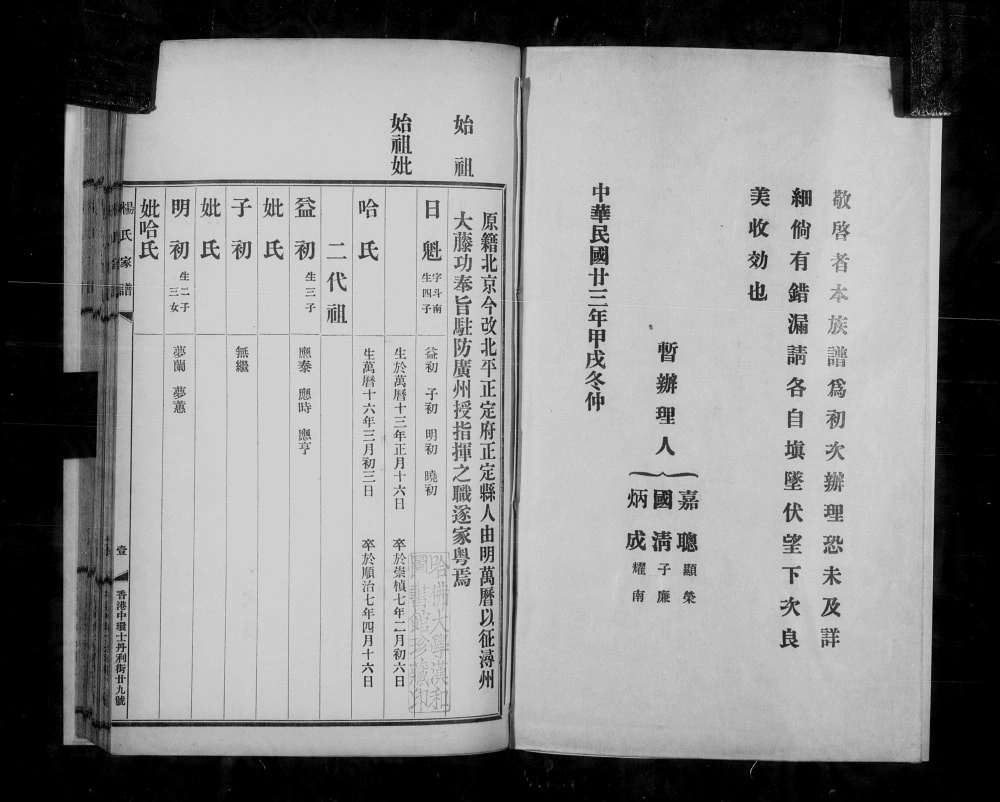 敬啓者本族譜爲初次辦理恐未及詳
細倘有錯漏請各自塡墜伏望下次良
美收効也
暫辦理人
嘉聰 顯榮
國清 子廉
炳成 耀南
中華民國廿三年甲戌冬仲
原籍北京今改北平正定府正定縣人由明萬曆以征潯州
大藤功奉旨駐防廣州授指揮之職遂家粤焉
始祖
日魁 字斗南 生四子 益初 子初 明初 曉初
生於萬曆十三年正月十六日 卒於崇禎七年二月初六日
始祖妣
哈氏 生萬曆十六年三月初三日 卒於順治七年四月十六日
二代祖
益初 生三子 應泰 應時 應亨
妣氏
子初 無繼
妣氏
明初 生二子 三女 夢蘭 夢蕙
妣哈氏
楊氏家譜
壹
香港中環士丹利街廿九號
哈佛大學漢和
圖書館珍藏印